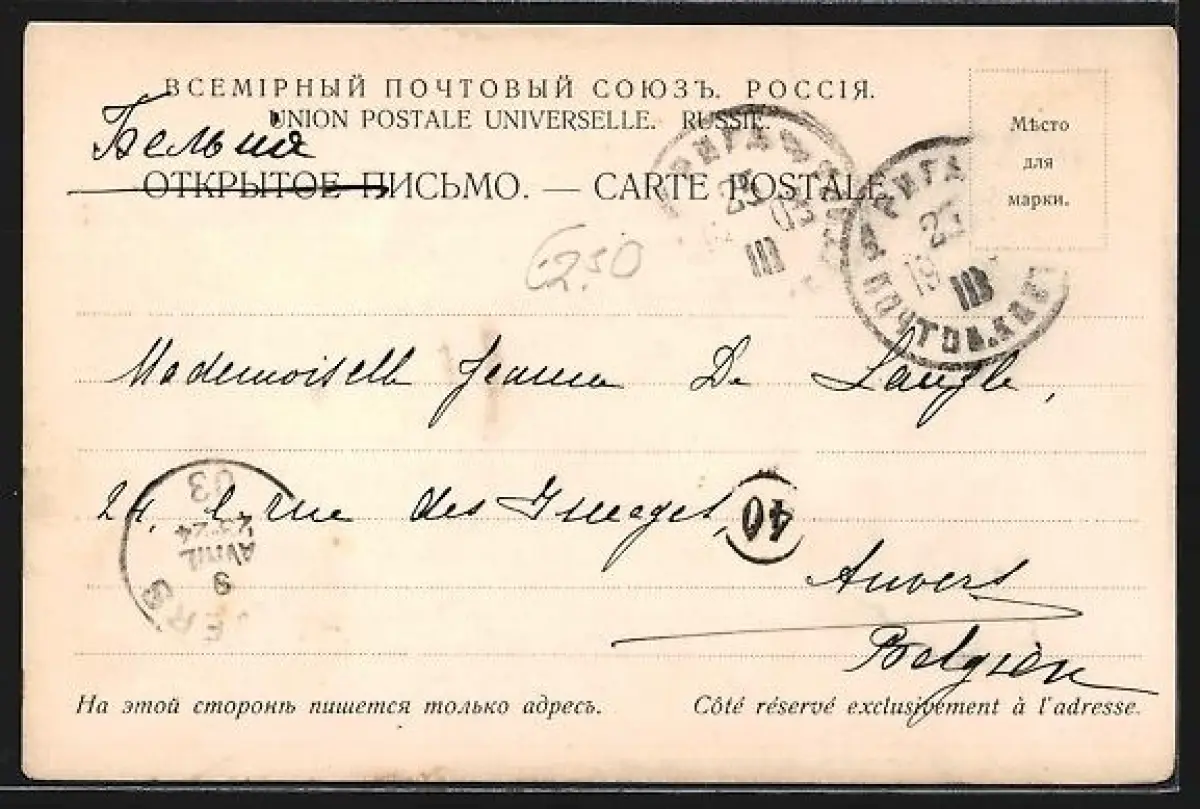 ВСЕМІРНЫЙ ПОЧТОВЫЙ СОЮЗЪ. РОССІЯ.
UNION POSTALE UNIVERSELLE. RUSSIE.
Бельгия
ОТКРЫТОЕ ПИСЬМО. — CARTE POSTALE.
Мѣсто
для
марки.
РИГА
23
03
III
РИГА
23
19
III
ПОЧТОВ.
250
Mademoiselle Jeanne De
24, rue des Images,
40
Anvers
Belgien
03
AVRIL
9
На этой сторонѣ пишется только адресъ.
Côté réservé exclusivement à l'adresse.